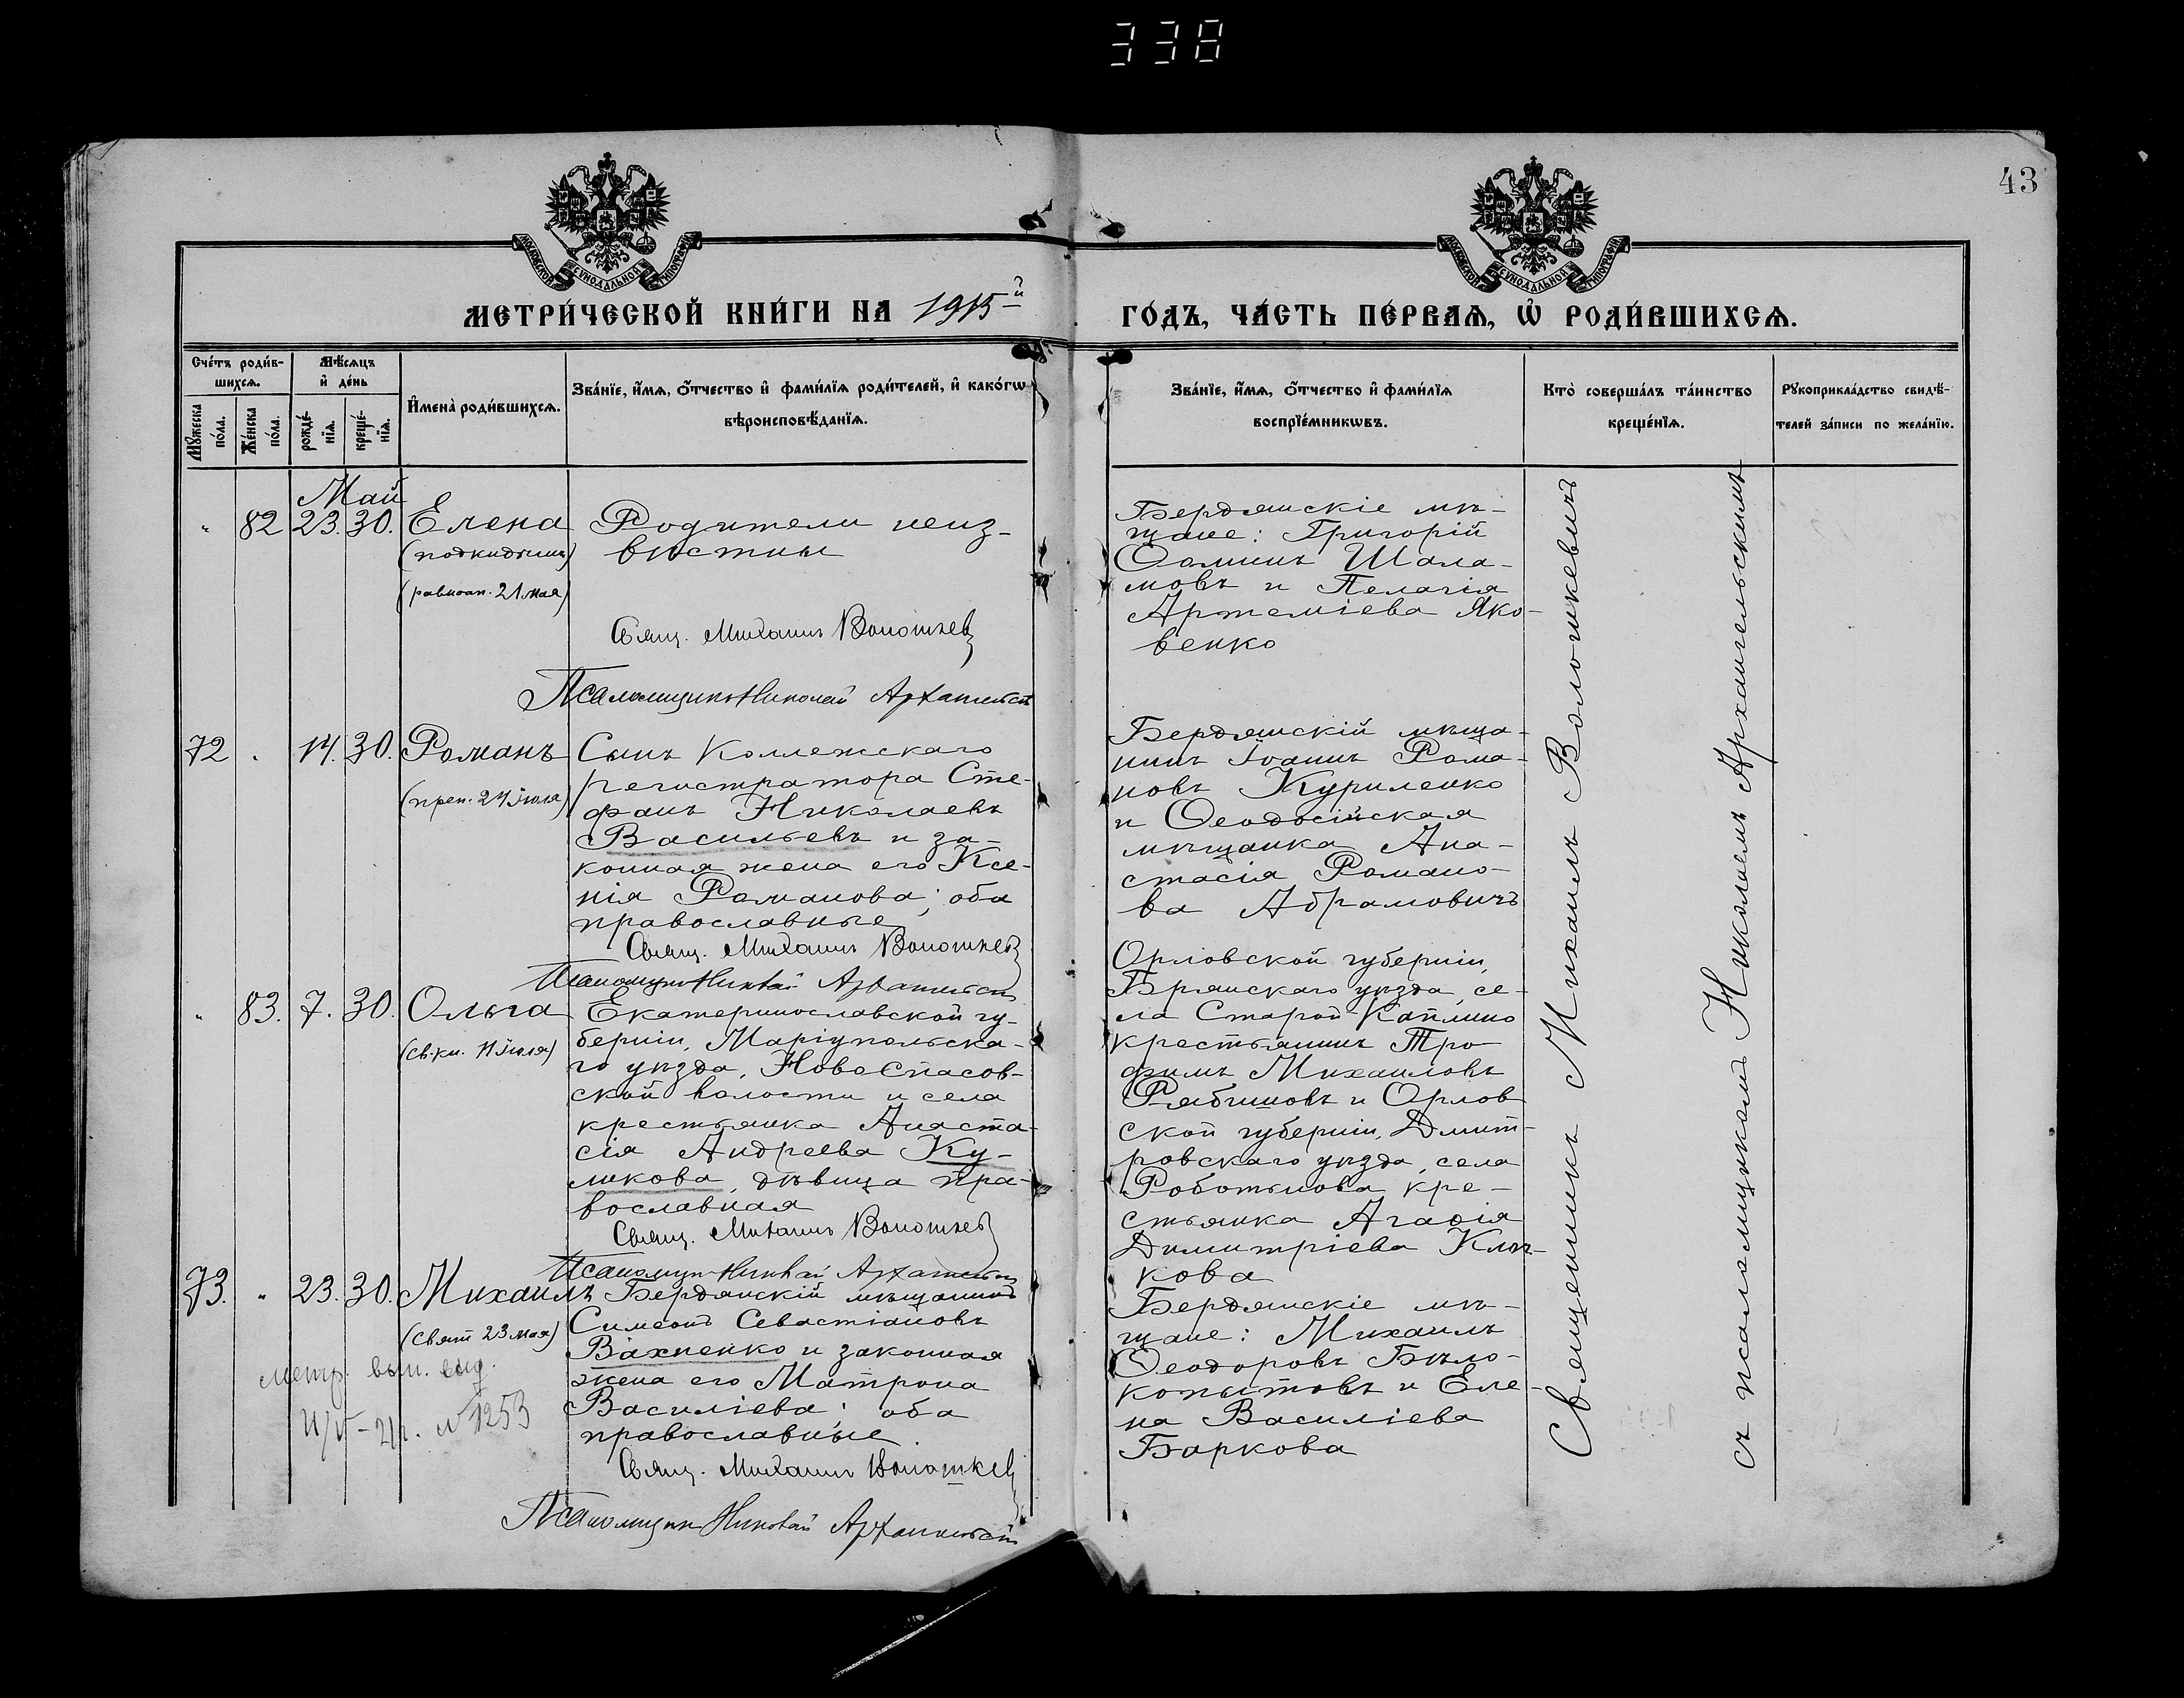 338
43
МОСКОВСКОЙ СѴНОДАЛЬНОЙ ТИПОГРАФІИ
МОСКОВСКОЙ СѴНОДАЛЬНОЙ ТИПОГРАФІИ
МЕТРИ́ЧЕСКОЙ КНИ́ГИ НА 1915-й
ГО́ДЪ, ЧА́СТЬ ПЕ́РВАѦ, Ѡ҆ РОДИ́ВШИХСѦ.
Сче́тъ роди́в-
шихсѧ.
Мꙋ́жеска по́ла.
Же́нска по́ла.
Мѣ́сѧцъ
и҆ де́нь
рожде́-
нїѧ.
креще́-
нїѧ.
И҆мена̀ роди́вшихсѧ.
Зва́нїе, и҆́мѧ, ѻ҆́тчество и҆ фами́лїѧ роди́телей, и҆ како́гѡ
вѣроисповѣ́данїѧ.
Зва́нїе, и҆́мѧ, ѻ҆́тчество и҆ фами́лїѧ
воспрїе́мникѡвъ.
Кто̀ соверша́лъ та́инство
креще́нїѧ.
Рꙋкоприкла́дство свидѣ́-
телей за́писи по жела́нїю.
Май
" 82 23. 30. Елена
(подкидышъ)
(равноап. 21 мая)
Родители неиз-
вѣстны
Свящ. Михаилъ Волошкев
Псаломщикъ Николай Архангельск
Бердянскіе мѣ-
щане: Григорій
Ѳоминъ Шала-
мовъ и Пелагія
Артеміева Яко-
венко
72 " 14. 30. Романъ
(преп. 24 іюля)
Сынъ Коллежскаго
регистратора Сте-
фанъ Николаевъ
Васильевъ и за-
конная жена его Ксе-
нія Романова; оба
православные
Свящ. Михаилъ Волошкев
Псаломщикъ Николай Архангельск
Бердянскій мѣща-
нинъ Іоаннъ Рома-
новъ Куриленко
и Ѳеодосійская
мѣщанка Ана-
стасія Романо-
ва Абрамовичъ
" 83. 7. 30. Ольга
(св. кн. 11 іюля)
Екатеринославской гу-
берніи, Маріупольска-
го уѣзда, НовоСпасов-
ской волости и села
крестьянка Анаста-
сія Андреева Ку-
ликова, дѣвица пра-
вославная
Свящ. Михаилъ Волошкев
Псаломщ. Николай Архангельск
Орловской губерніи,
Брянскаго уѣзда, се-
ла Старой Каплино
крестьянинъ Тро-
фимъ Михаиловъ
Рябишовъ и Орлов
ской губерніи, Дмит-
ровскаго уѣзда, села
Роботькова кре-
стьянка Агаѳія
Димитріева Клю-
кова
73. " 23. 30. Михаилъ
(свят 23 мая)
метр. вып. выд.
№ 1253
Бердянскій мѣщанинъ
Симеонъ Севастіановъ
Вахненко и законная
жена его Матрона
Василіева; оба
православные.
Свящ. Михаилъ Волошкев
Псаломщикъ Николай Архангельск
Бердянскіе мѣ-
щане: Михаилъ
Ѳеодоровъ Бѣло-
копытовъ и Еле-
на Василіева
Баркова
Священникъ Михаилъ Волошкевичъ
съ псаломщикомъ Николаемъ Архангельскимъ